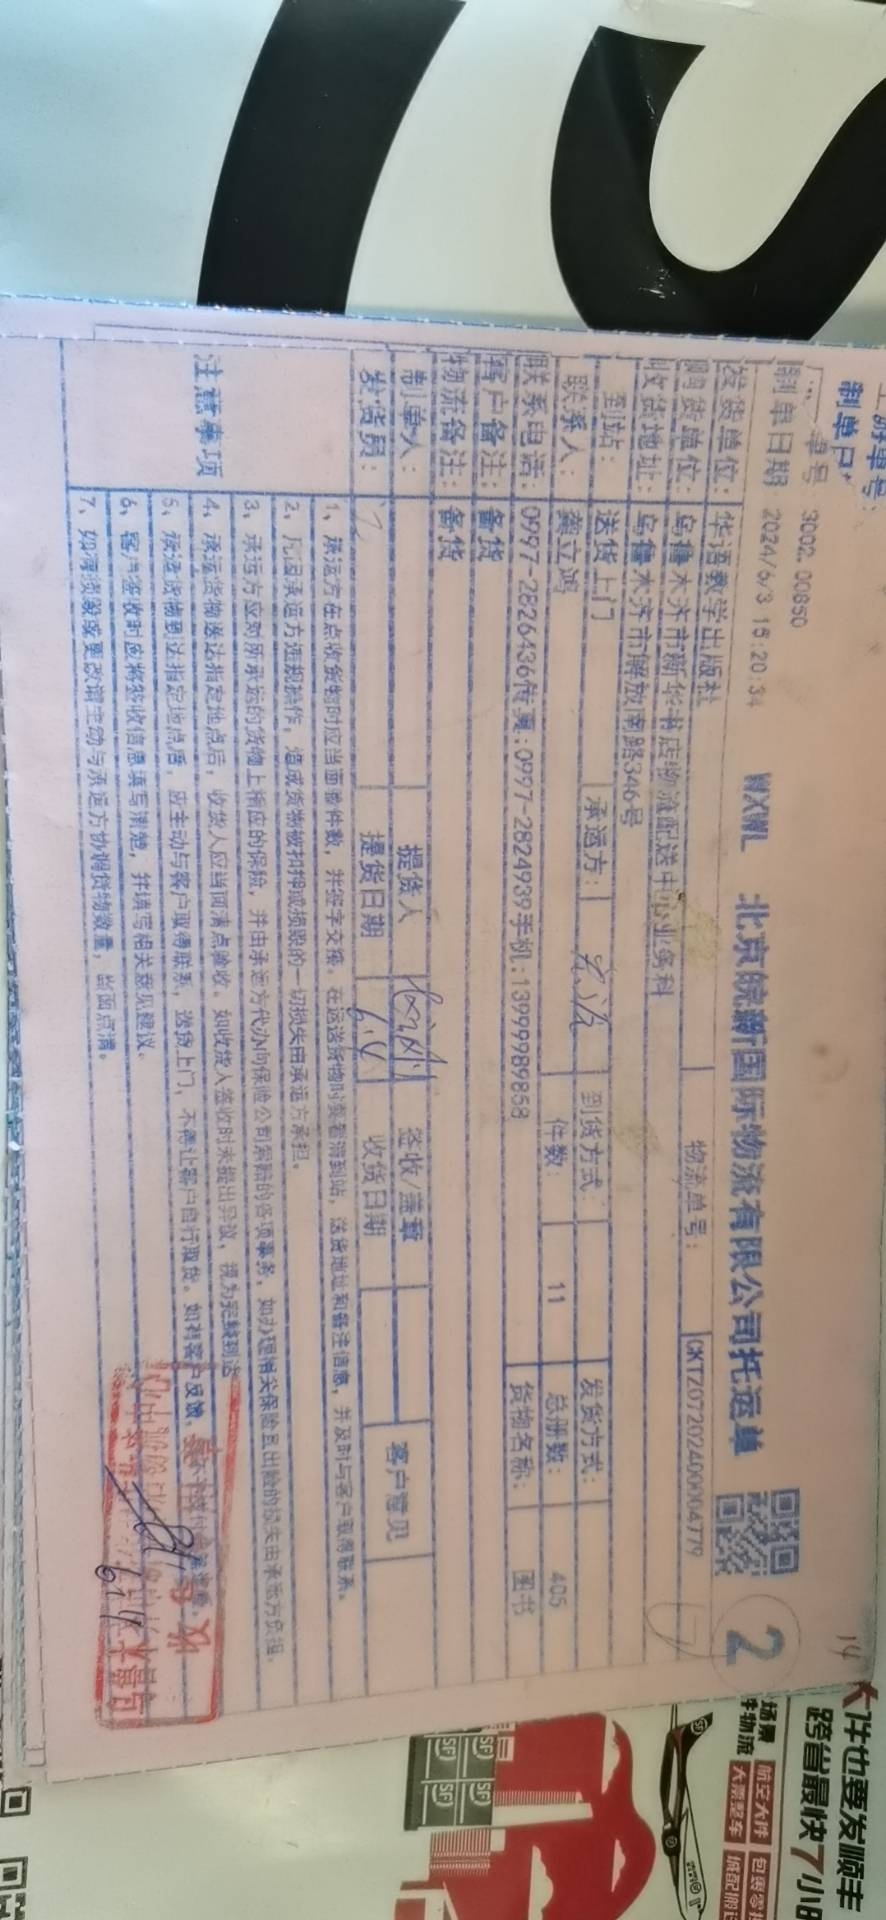 制单日
单号 3002 00850
制单日期 2024/6/3 15:20:34 WXWL 北京皖新国际物流有限公司托运单 2
发货单位: 华语教学出版社 物流单号: CKTZ07202400004779
购货单位: 乌鲁木齐市新华书店物流配送中心业务科
收货地址: 乌鲁木齐市解放南路346号
到站: 送货上门 承运方: 到货方式: 发货方式:
联系人: 龚立鸿 件数: 11 总册数: 405
联系电话: 0997-2826436传真:0997-2824939手机:13999989858 货物名称: 图书
客户备注: 备货
物流备注: 备货
制单人: 提货人 签收/盖章 客户意见
发货员: 提货日期 6.4 收货日期
注意事项
1、承运方在点收货物时应当面验件数,并签字交接。在运送货物时要看清到站,送货地址和备注信息,并及时与客户取得联系。
2、凡因承运方违规操作,造成货物被扣押或损毁的一切损失由承运方承担。
3、承运方应对所承运的货物上相应的保险,并由承运方代办向保险公司索赔的各项事务,如办理相关保险且出险的损失由承运方负担。
4、承运货物送达指定地点后,收货人应当面清点验收。如收货人签收时未提出异议,视为完整到达
5、承运货物到达指定地点后,应主动与客户取得联系,送货上门,不得让客户自行取货。如有客户反馈,
6、客户签收时应将签收信息填写清楚,并填写相关意见建议。
7、如有误数或更改请主动与承运方协调货物数量,当面点清。
14
大件也要发顺丰
跨省最快7小时
航空大件
大票整车
SF